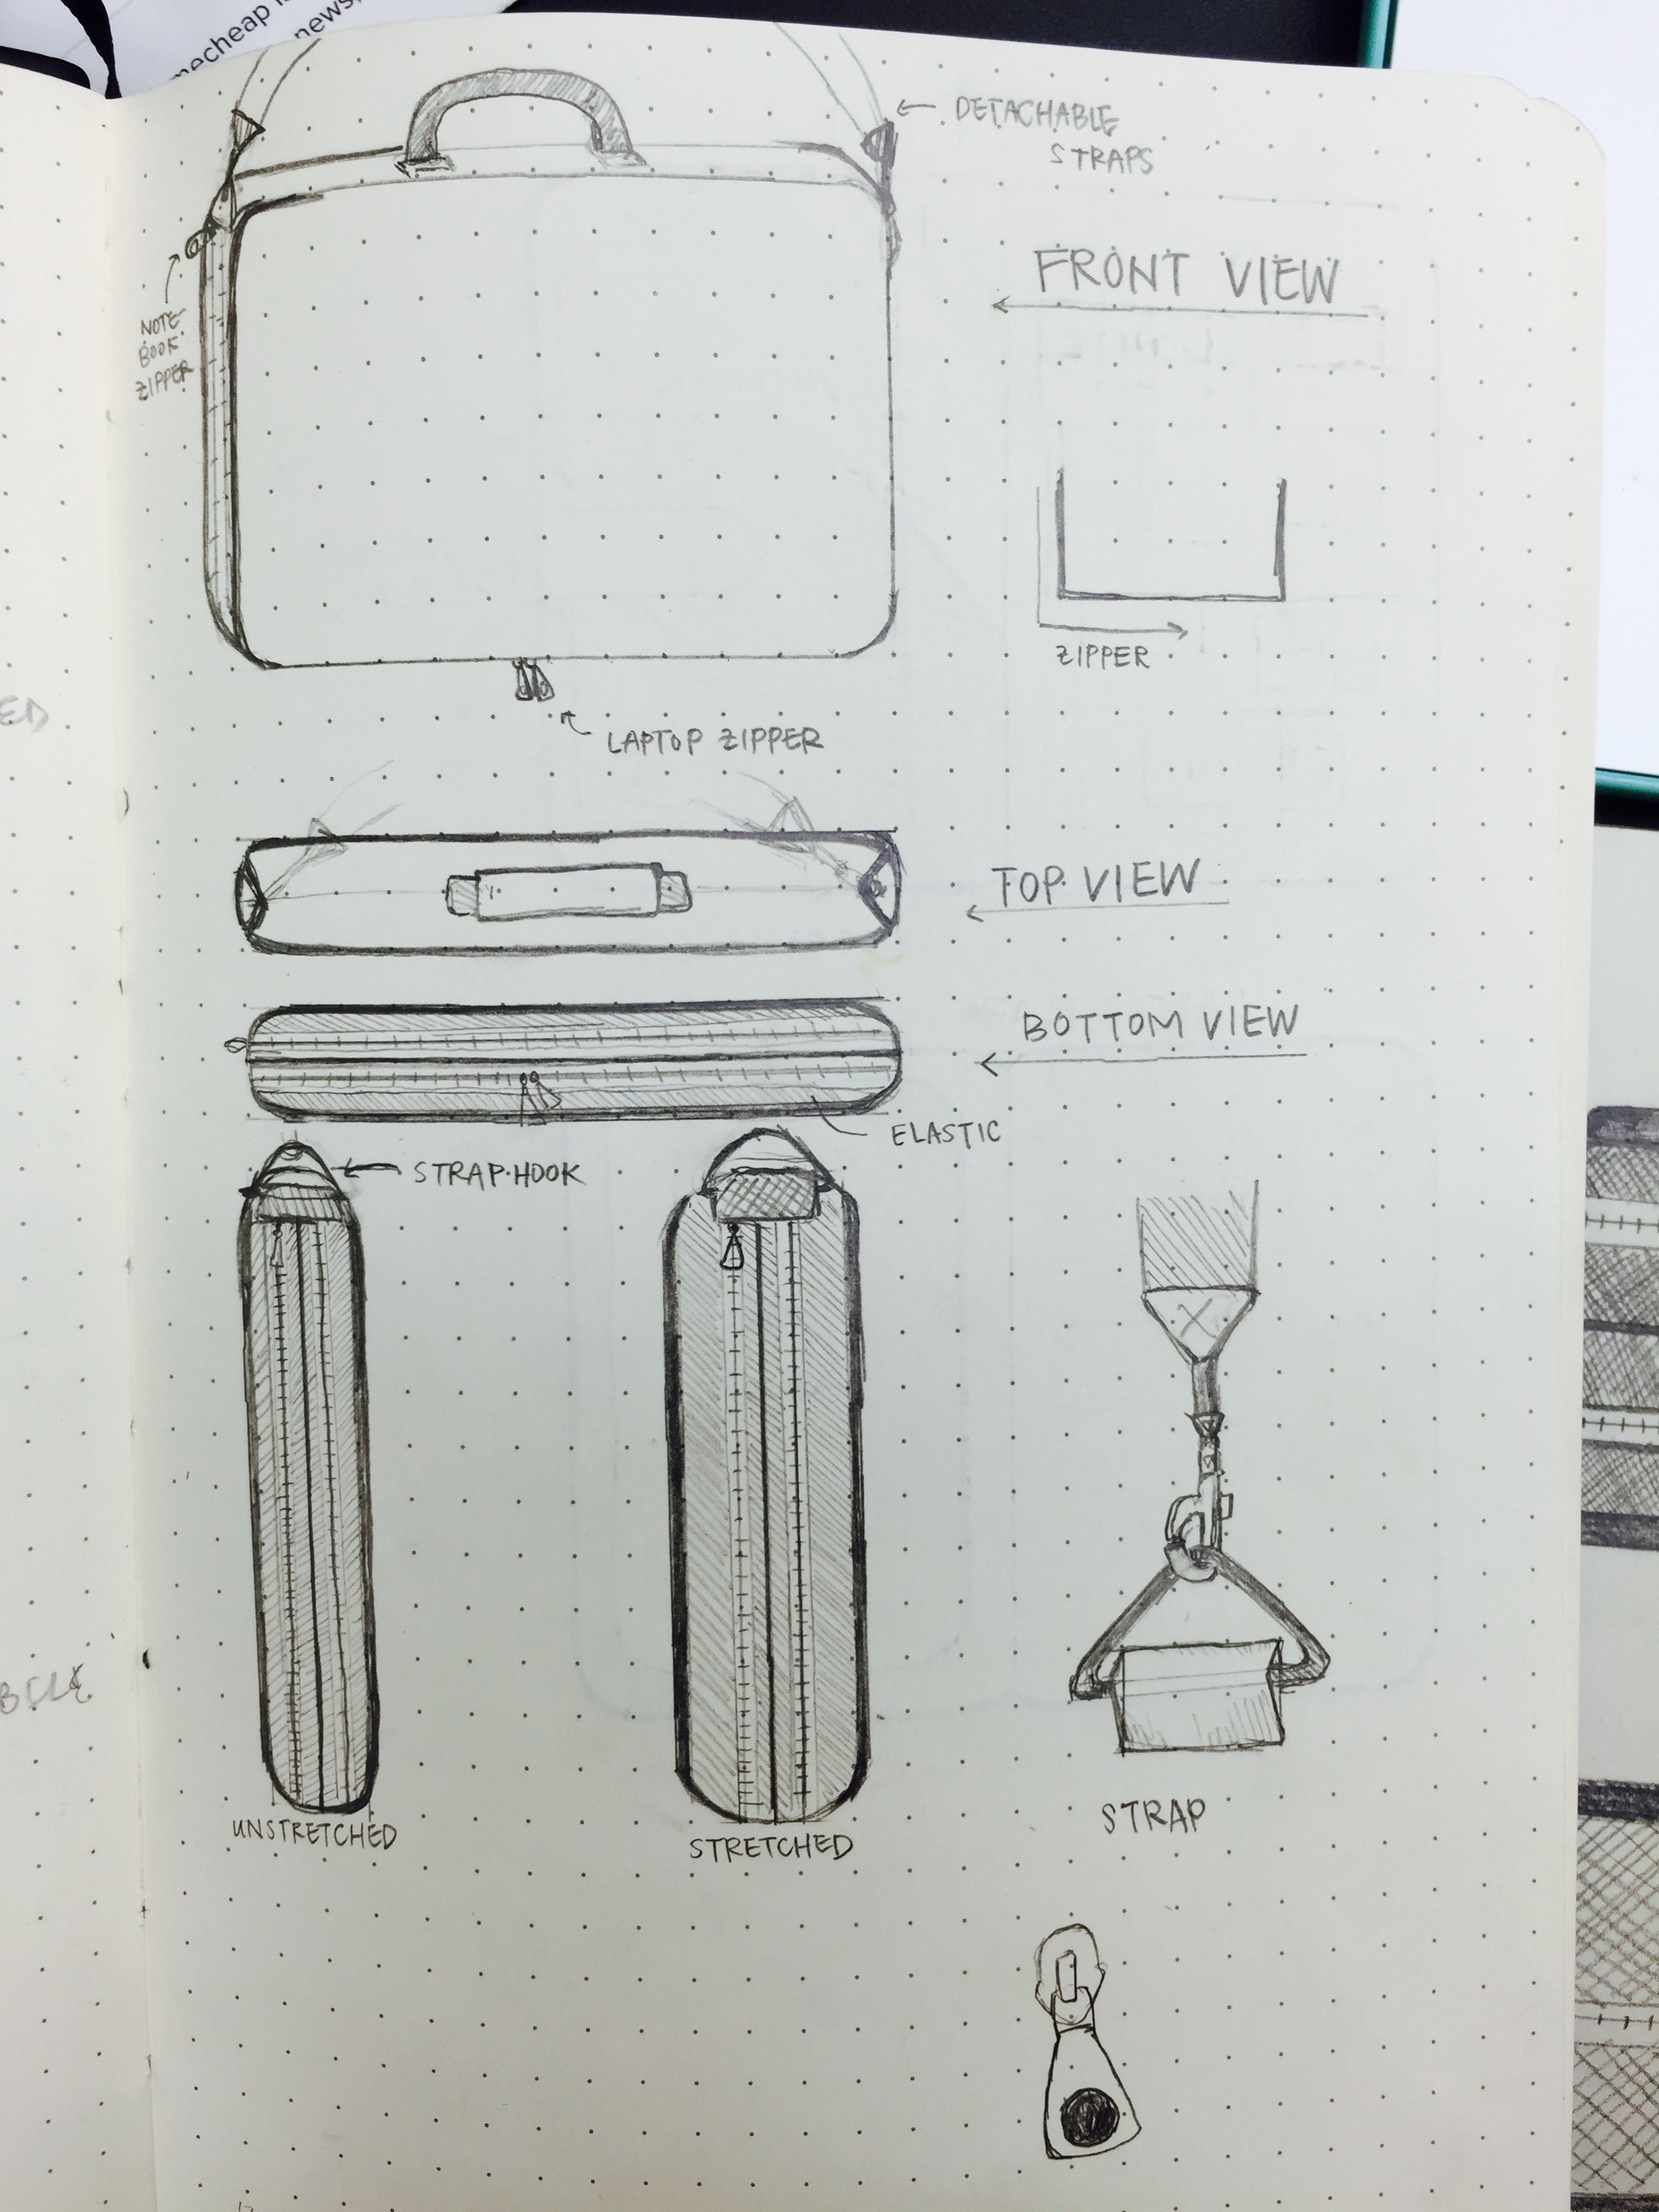 mecheap i
news,
DETACHABLE
STRAPS
FRONT VIEW
NOTE-
BOOK
ZIPPER
ZIPPER
LAPTOP ZIPPER
TOP VIEW
BOTTOM VIEW
ELASTIC
STRAP HOOK
UNSTRETCHED
STRETCHED
STRAP
ED